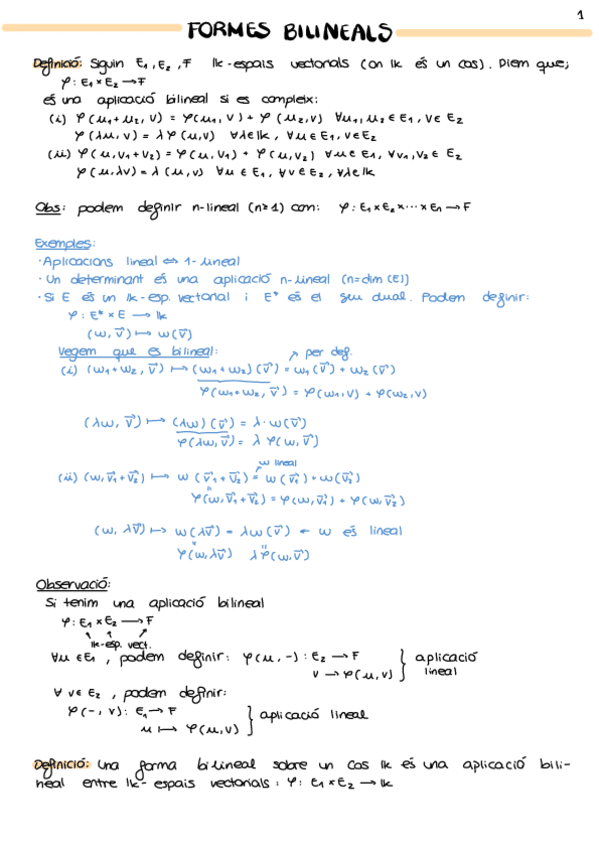 1
FORMES BILINEALS
Definició: Siguin E₁, E₂, F lk-espais vectorials (on lk és un cos). Diem que;
φ: E₁ × E₂ → F
és una aplicació bilineal si es compleix:
(i) φ(u₁+u₂, v) = φ(u₁, v) + φ(u₂, v) ∀u₁, u₂ ∈ E₁, v ∈ E₂
φ(λu, v) = λ φ(u, v) ∀λ ∈ lk, ∀u ∈ E₁, v ∈ E₂
(ii) φ(u, v₁+v₂) = φ(u, v₁) + φ(u, v₂) ∀u ∈ E₁, ∀v₁, v₂ ∈ E₂
φ(u, λv) = λ (u, v) ∀u ∈ E₁, ∀v ∈ E₂, ∀λ ∈ lk
Obs: podem definir n-lineal (n≥1) com: φ: E₁ × E₂ × ··· × En → F
Exemples:
· Aplicacions lineal ⇔ 1-lineal
· Un determinant és una aplicació n-lineal (n=dim(E))
· Si E és un lk-esp. vectorial i E* és el seu dual. Podem definir:
φ: E* × E → lk
(w, v⃗) ↦ w(v⃗)
Vegem que és bilineal: ↗ per def.
(i) (w₁+w₂, v⃗) ↦ (w₁+w₂)(v⃗) = w₁(v⃗) + w₂(v⃗)
φ(w₁+w₂, v⃗) = φ(w₁, v) + φ(w₂, v)
(λw, v⃗) ↦ (λw)(v⃗) = λ·w(v⃗)
φ(λw, v⃗) = λ φ(w, v⃗)
w lineal
(ii) (w, v⃗₁+v⃗₂) ↦ w(v⃗₁+v⃗₂) = w(v⃗₁) + w(v⃗₂)
φ(w, v⃗₁+v⃗₂) = φ(w, v⃗₁) + φ(w, v⃗₂)
(w, λv⃗) ↦ w(λv⃗) = λw(v⃗) ← w és lineal
φ(w, λv⃗) λφ(w, v⃗)
Observació:
Si tenim una aplicació bilineal
φ: E₁ × E₂ → F
lk-esp. vect.
∀u ∈ E₁, podem definir: φ(u, -): E₂ → F } aplicació
v → φ(u, v) lineal
∀ v ∈ E₂, podem definir:
φ(-, v): E₁ → F } aplicació lineal
u ↦ φ(u, v)
Definició: Una forma bilineal sobre un cos lk és una aplicació bili-
neal entre lk-espais vectorials: φ: E₁ × E₂ → lk